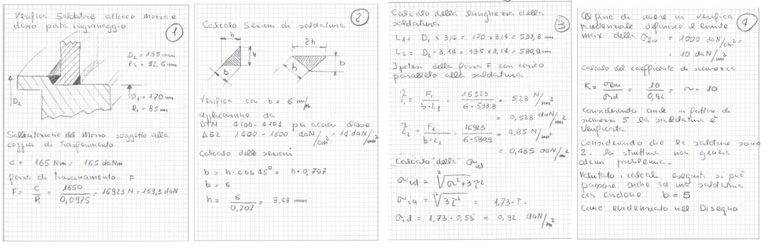 Verifica Saldature attacco Morsa e
disco porta ingranaggio
1
D2 = 185 mm
R2 = 92,5 mm
D2
D1 = 170 mm
R1 = 85 mm
Sollecitazione del Morso soggetto alla
coppia di Trasferimento
C = 165 Nm
forza di trascinamento F
F = C / R = 1650 / 0,0975 = 16923 N = 169,3 daN
2
Calcolo Sezioni di saldatura
h
h
b
2h
b
b
Verifica con b = 6 mm
applicazione da
1400 - 1800 daN/cm²
Calcolo delle sezioni
b = h · cos 45° = h · 0,707
b = 6
h = 6 / 0,707 = 8,48 mm
3
Calcolo della lunghezza della
saldatura
L1 = D1 x 3,14 = 170 x 3,14 = 533,8 mm
L2 = D2 · 3,14 = 185 x 3,14 = 580,9 mm
Ipotesi della forza F con carico
parallelo alla saldatura
F1 / b · L1 = 16923 / 6 · 533,8 = 5,28 N/mm²
= 0,528 daN/mm²
F2 / b · L2 = 16923 / 6 · 580,9 = 4,85 N/mm²
= 0,485 daN/mm²
Calcolo della σid
σid = √σ²+3τ²
σid = √3τ² = 1,73 · τ
σid = 1,73 · 0,53 = 0,92 daN/mm²
4
Al fine di avere una verifica
prudenziale definisco il limite
max della = 1000 daN/cm²
= 10 daN/mm²
Calcolo del coefficiente di sicurezza
K = σam / σid = 10 / 0,92 = ~ 10
Considerando anche un fattore di
sicurezza 5 la saldatura è
Verificata
Considerando che le saldature sono
2 la struttura non genera
alcun problema.
Valutato i calcoli eseguiti si può
passare anche ad una saldatura
con cordone b = 5
Come evidenziato nel Disegno